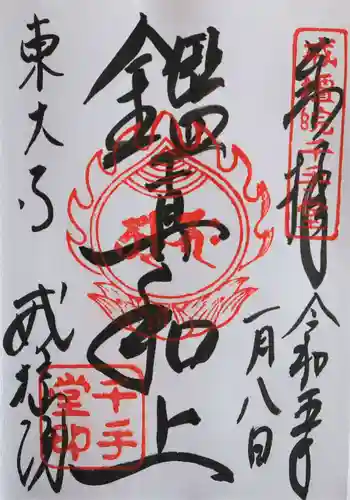 奉拝
戒壇院千手堂
令和五年
一月八日
鑑真和上
東大寺
戒壇院
千手堂印